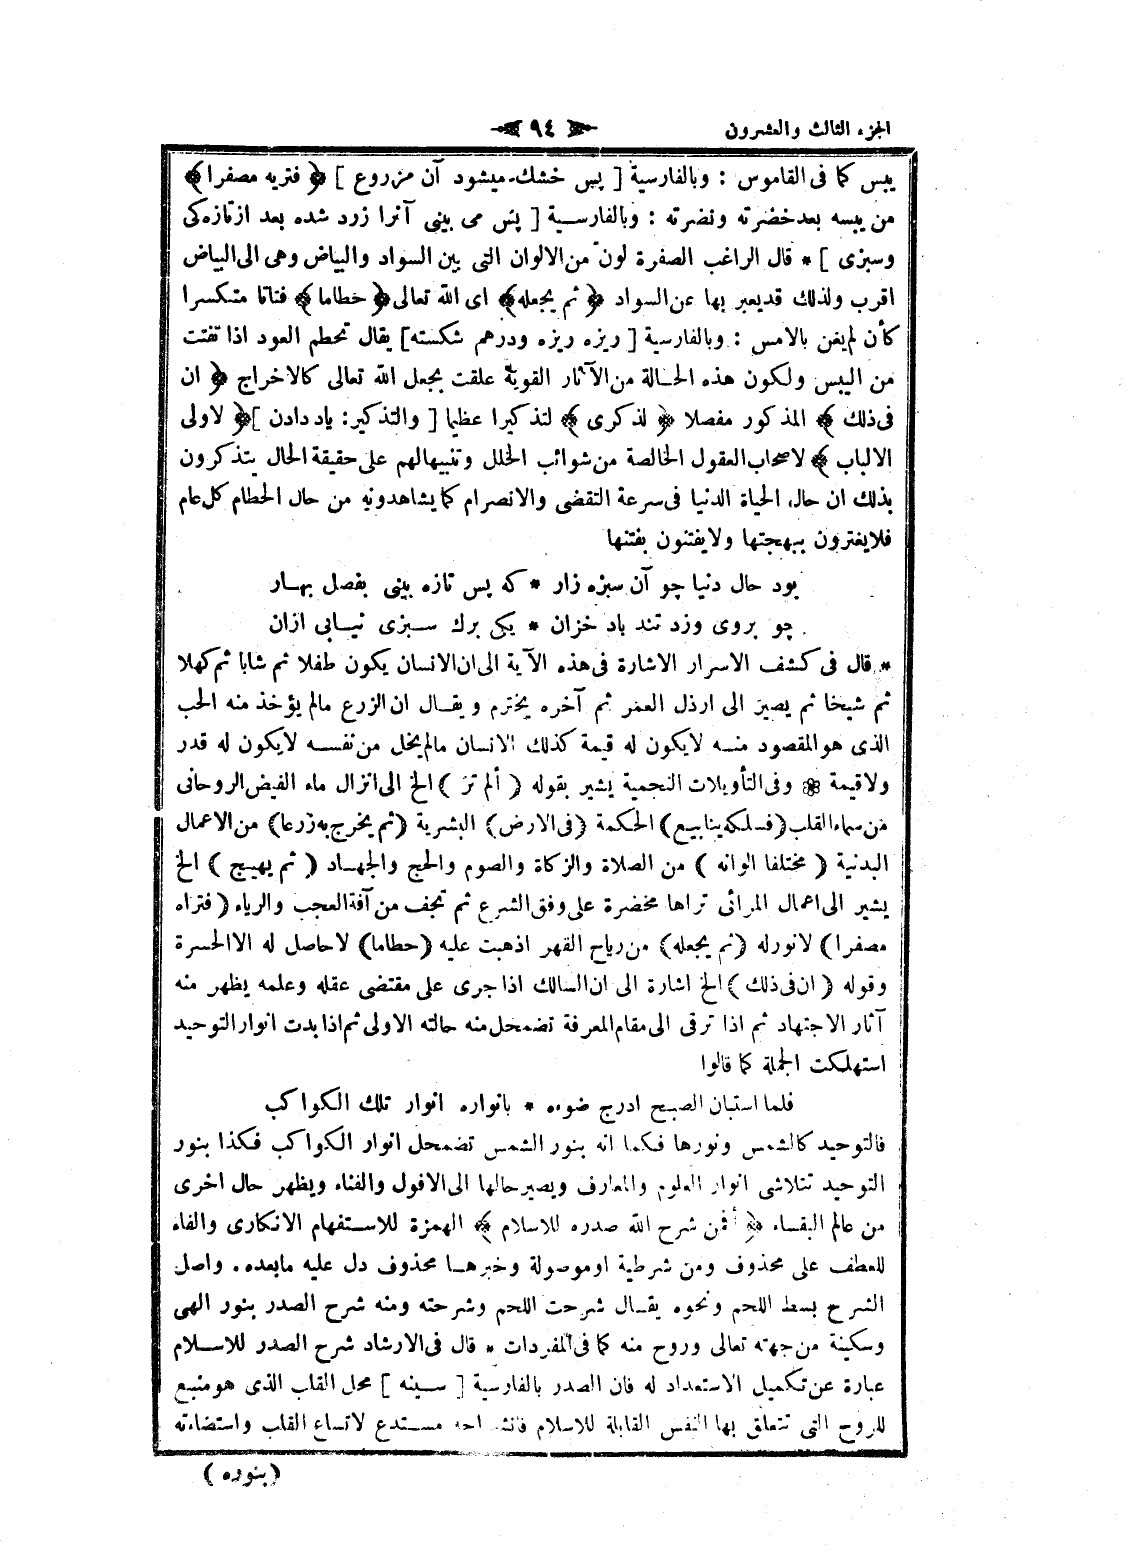 الجزء الثالث والعشرون
٩٤
ييبس كما فى القاموس : وبالفارسية [ پس خشك ميشود آن مزروع ] ﴿ فتريه مصفرا ﴾
من يبسه بعد خضرته ونضرته : وبالفارسية [ پس مى بينى آنرا زرد شده بعد از تازه كى
وسبزى ] * قال الراغب الصفرة لون من الالوان التى بين السواد والبياض وهى الى البياض
اقرب ولذلك قديعبر بها عن السواد ﴿ ثم يجعله ﴾ اى الله تعالى ﴿ حطاما ﴾ فتاتا متكسرا
كأن لم يغن بالامس : وبالفارسية [ ريزه ريزه ودرهم شكسته ] يقال تحطم العود اذا تفتت
من اليبس ولكون هذه الحالة من الآثار القوية علقت بجعل الله تعالى كالاخراج ﴿ ان
فى ذلك ﴾ المذكور مفصلا ﴿ لذكرى ﴾ لتذكيرا عظيما [ والتذكير : ياد دادن ] ﴿ لاولى
الالباب ﴾ لاصحاب العقول الخالصة من شوائب الخلل وتنبيهالهم على حقيقة الحال يتذكرون
بذلك ان حال الحياة الدنيا فى سرعة التقضى والانصرام كما يشاهدونه من حال الحطام كل عام
فلايغترون ببهجتها ولايفتنون بفتنها
بود حال دنيا چو آن سبزه زار * كه پس تازه بينى بفصل بهار
چو بروى وزد تند باد خزان * يكى برك سبزى نيابى ازان
* قال فى كشف الاسرار الاشارة فى هذه الآية الى ان الانسان يكون طفلا ثم شابا ثم كهلا
ثم شيخا ثم يصير الى ارذل العمر ثم آخره يخترم ويقال ان الزرع مالم يؤخذ منه الحب
الذى هو المقصود منه لايكون له قيمة كذلك الانسان مالم يخل من نفسه لايكون له قدر
ولاقيمة ❀ وفى التأويلات النجمية يشير بقوله ( ألم تر ) الخ الى انزال ماء الفيض الروحانى
من سماء القلب (فسلكه ينابيع) الحكمة (فى الارض) البشرية (ثم يخرج به زرعا) من الاعمال
البدنية ( مختلفا الوانه ) من الصلاة والزكاة والصوم والحج والجهاد ( ثم يهيج ) الخ
يشير الى اعمال المرائى تراها مخضرة على وفق الشرع ثم تجف من آفة العجب والرياء ( فتراه
مصفرا ) لانورله (ثم يجعله) من رياح القهر اذهبت عليه (حطاما) لاحاصل له الا الحسرة
وقوله ( ان فى ذلك ) الخ اشارة الى ان السالك اذا جرى على مقتضى عقله وعلمه يظهر منه
آثار الاجتهاد ثم اذا ترقى الى مقام المعرفة تضمحل منه حالته الاولى ثم اذا بدت انوار التوحيد
استهلكت الجملة كما قالوا
فلما استبان الصبح ادرج ضوءه * بانواره انوار تلك الكواكب
فالتوحيد كالشمس ونورها فكما انه بنور الشمس تضمحل انوار الكواكب فكذا بنور
التوحيد تتلاشى انوار العلوم والمعارف ويصير حالها الى الافول والفناء ويظهر حال اخرى
من عالم البقاء ﴿ أفمن شرح الله صدره للاسلام ﴾ الهمزة للاستفهام الانكارى والفاء
للعطف على محذوف ومن شرطية او موصولة وخبرها محذوف دل عليه مابعده. واصل
الشرح بسط اللحم ونحوه يقال شرحت اللحم وشرحته ومنه شرح الصدر بنور الهى
وسكينة من جهته تعالى وروح منه كما فى المفردات * قال فى الارشاد شرح الصدر للاسلام
عبارة عن تكميل الاستعداد له فان الصدر بالفارسية [ سينه ] محل القلب الذى هو منبع
للروح التى تتعلق بها النفس القابلة للاسلام فانشراحه مستدع لاتساع القلب واستضاءته
( بنوره )